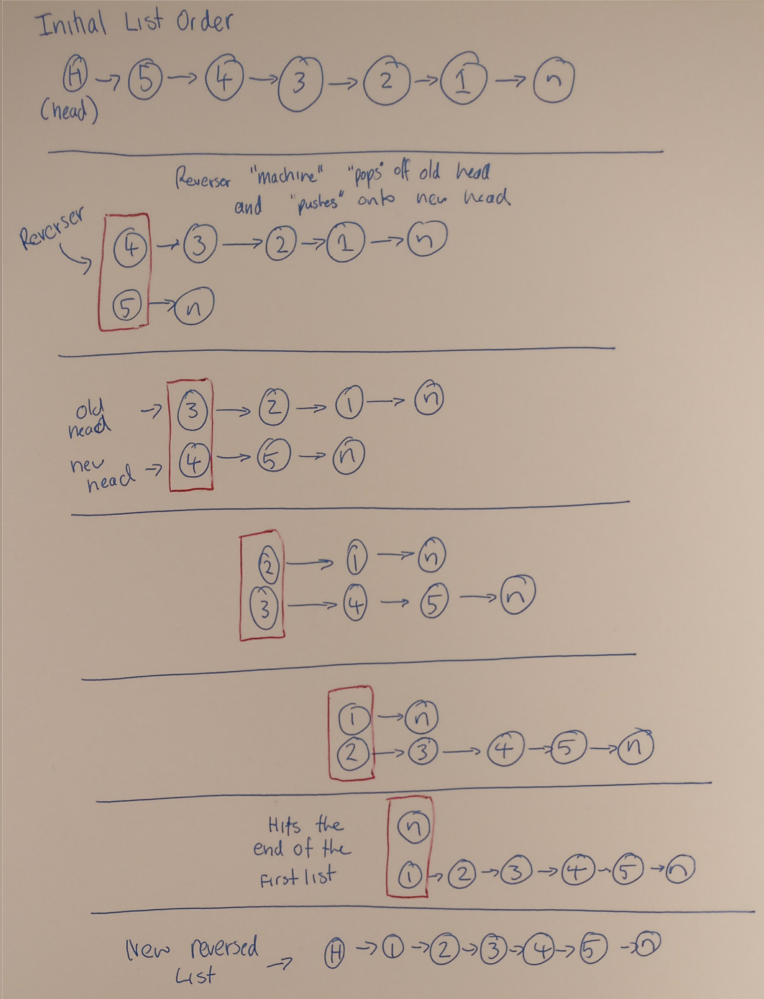 Initial List Order
H → 5 → 4 → 3 → 2 → 1 → n
(head)
Reverser "machine" "pops" off old head
and "pushes" onto new head
Reverser
4 → 3 → 2 → 1 → n
5 → n
old
head → 3 → 2 → 1 → n
new
head → 4 → 5 → n
2 → 1 → n
3 → 4 → 5 → n
1 → n
2 → 3 → 4 → 5 → n
Hits the
end of the
first list
n
1 → 2 → 3 → 4 → 5 → n
New reversed
List → H → 1 → 2 → 3 → 4 → 5 → n